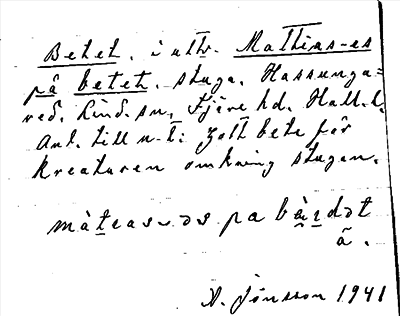 Betet. i uttr. Mathias-es
på betet. stuga. Hassunga=
red. Lind. sn. Fjäre hd. Hall. l.
Anl. till n-t: godt bete för
kreaturen omkring stugan.
màteas-əs pa
ã.
A. Jönsson 1941